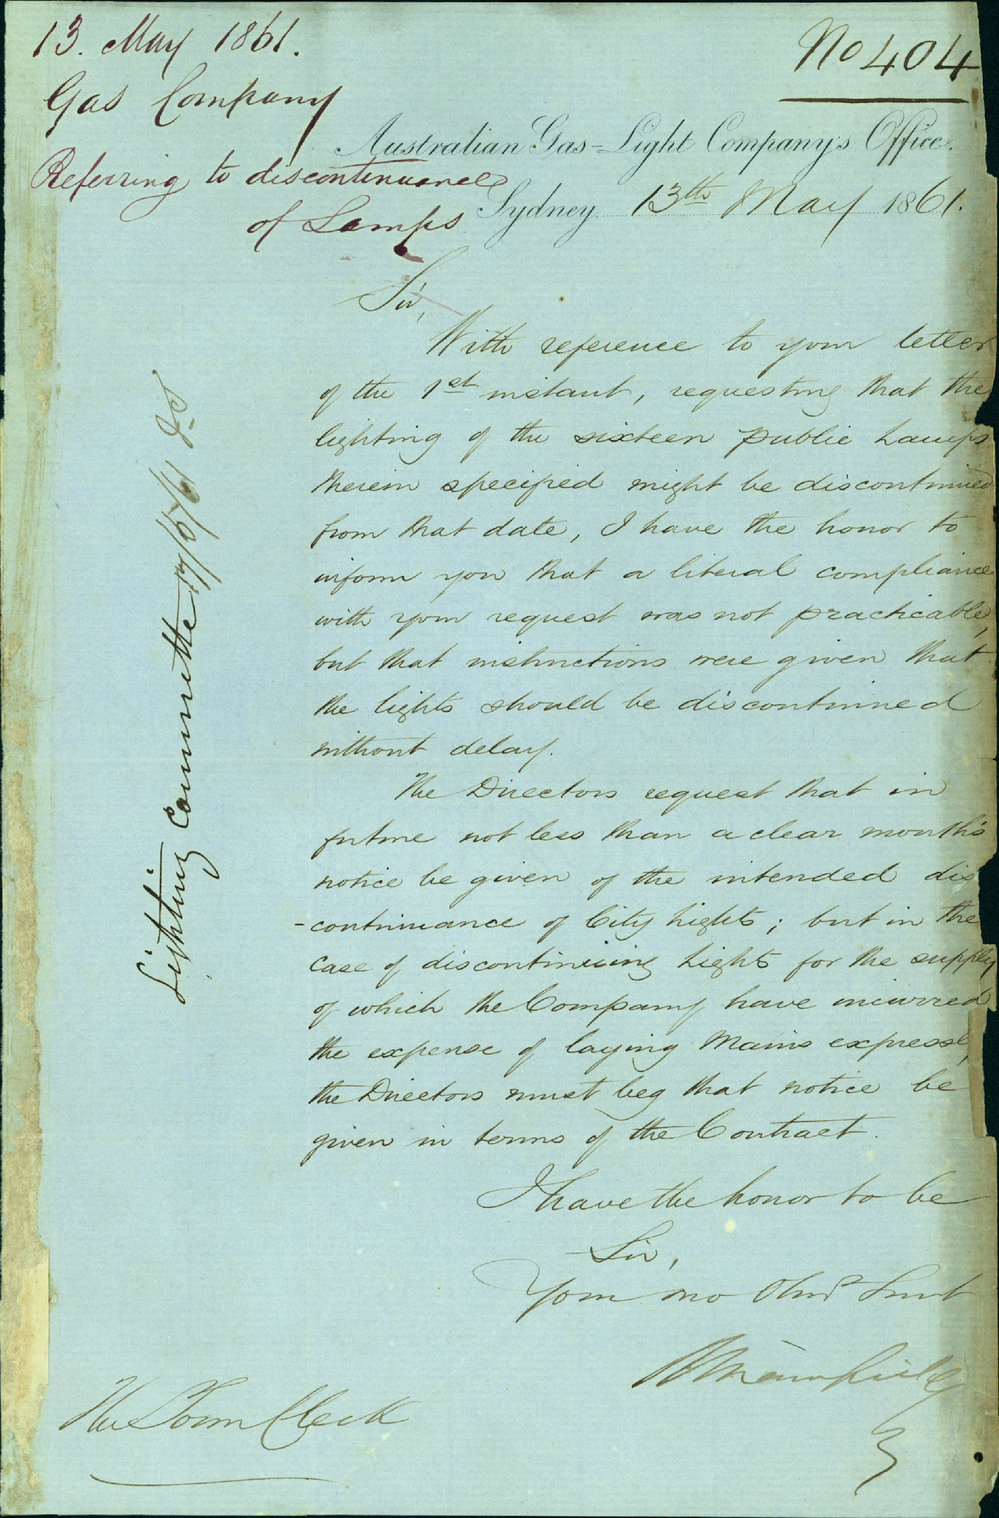 13. May 1861.
No 404
Gas Company
Referring to discontinuance
of Lamps
Australian Gas-Light Company's Office.
Sydney 13th May 1861.
Sir,
With reference to your letter
of the 1st instant, requesting that the
lighting of the sixteen public Lamps
therein specified might be discontinued
from that date, I have the honor to
inform you that a literal compliance
with your request was not practicable,
but that instructions were given that
the lights should be discontinued
without delay.
The Directors request that in
future not less than a clear month's
notice be given of the intended dis
-continuance of City Lights; but in the
case of discontinuing Lights for the supply
of which the Company have incurred
the expense of laying Mains expressly,
the Directors must beg that notice be
given in terms of the Contract.
I have the honor to be
Sir,
Your mo Obt Servt
Mansfield
The Town Clerk
Lighting Committee 17/5/61